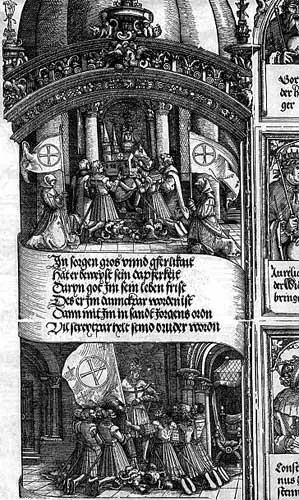 Jn sorgen gros vnnd gferlikait
Hat er bewyst sein dapferkeit
Daryn got jm sein leben frist
Des er jm dannckbar worden ist
Dann mit jm in sandt Jorgens ordn
Vil streytpar held seind bruder wordn
der h
ger
Aurelic
bring
Const
nus